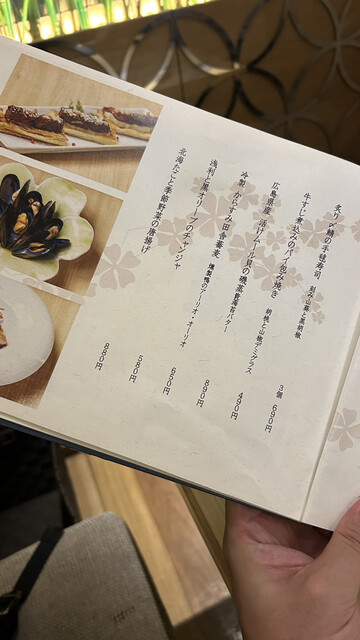 炙り〆鯖の手毬寿司 刻み山葵と黒胡椒 3個 690円
牛すじ煮込みのパイ包み焼き 胡桃と山椒デミグラス 490円
広島県産 活けムール貝の磯蒸 青海苔バター 890円
冷製 からすみ田舎蕎麦 燻製鴨のアーリオ・オーリオ 650円
浅利と黒オリーブのチャンジャ 580円
北海たこと季節野菜の唐揚げ 880円